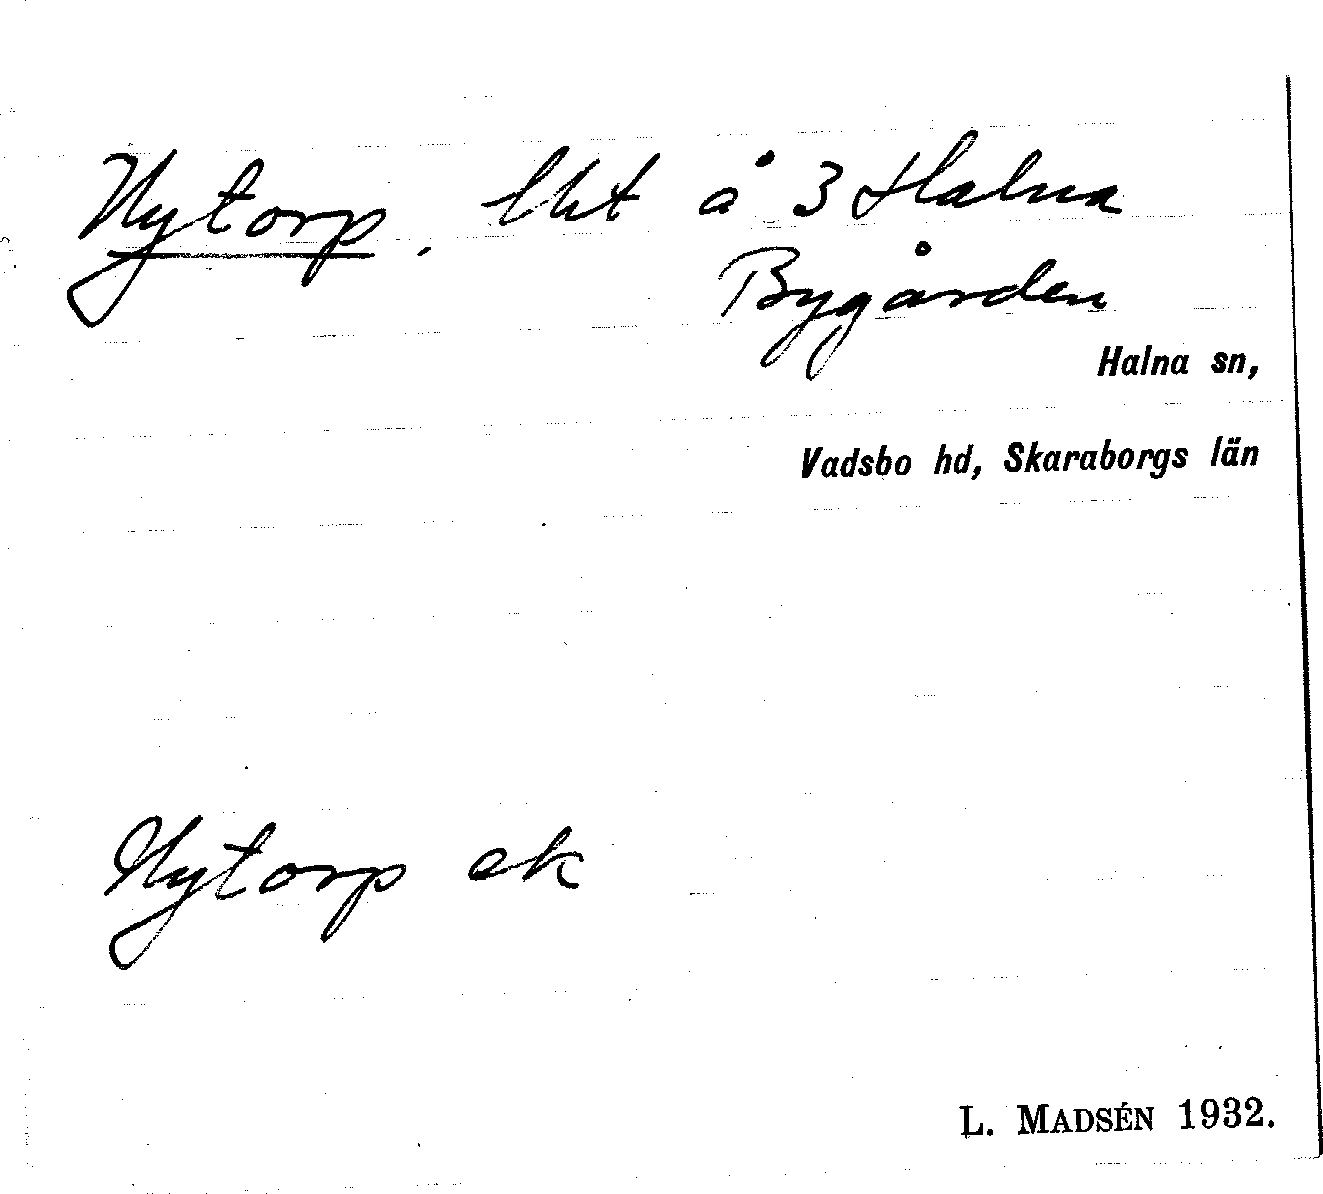 Nytorp, lht å 3 Halna
Bygården
Halna sn,
Vadsbo hd, Skaraborgs län
Nytorp ek
L. MADSÉN 1932.